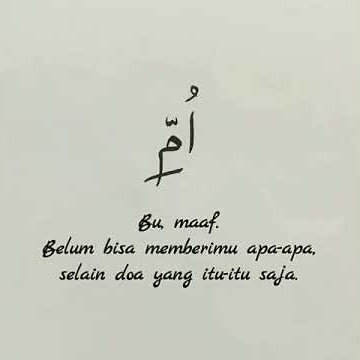 أُمِّ
Bu, maaf.
Belum bisa memberimu apa-apa,
selain doa yang itu-itu saja.